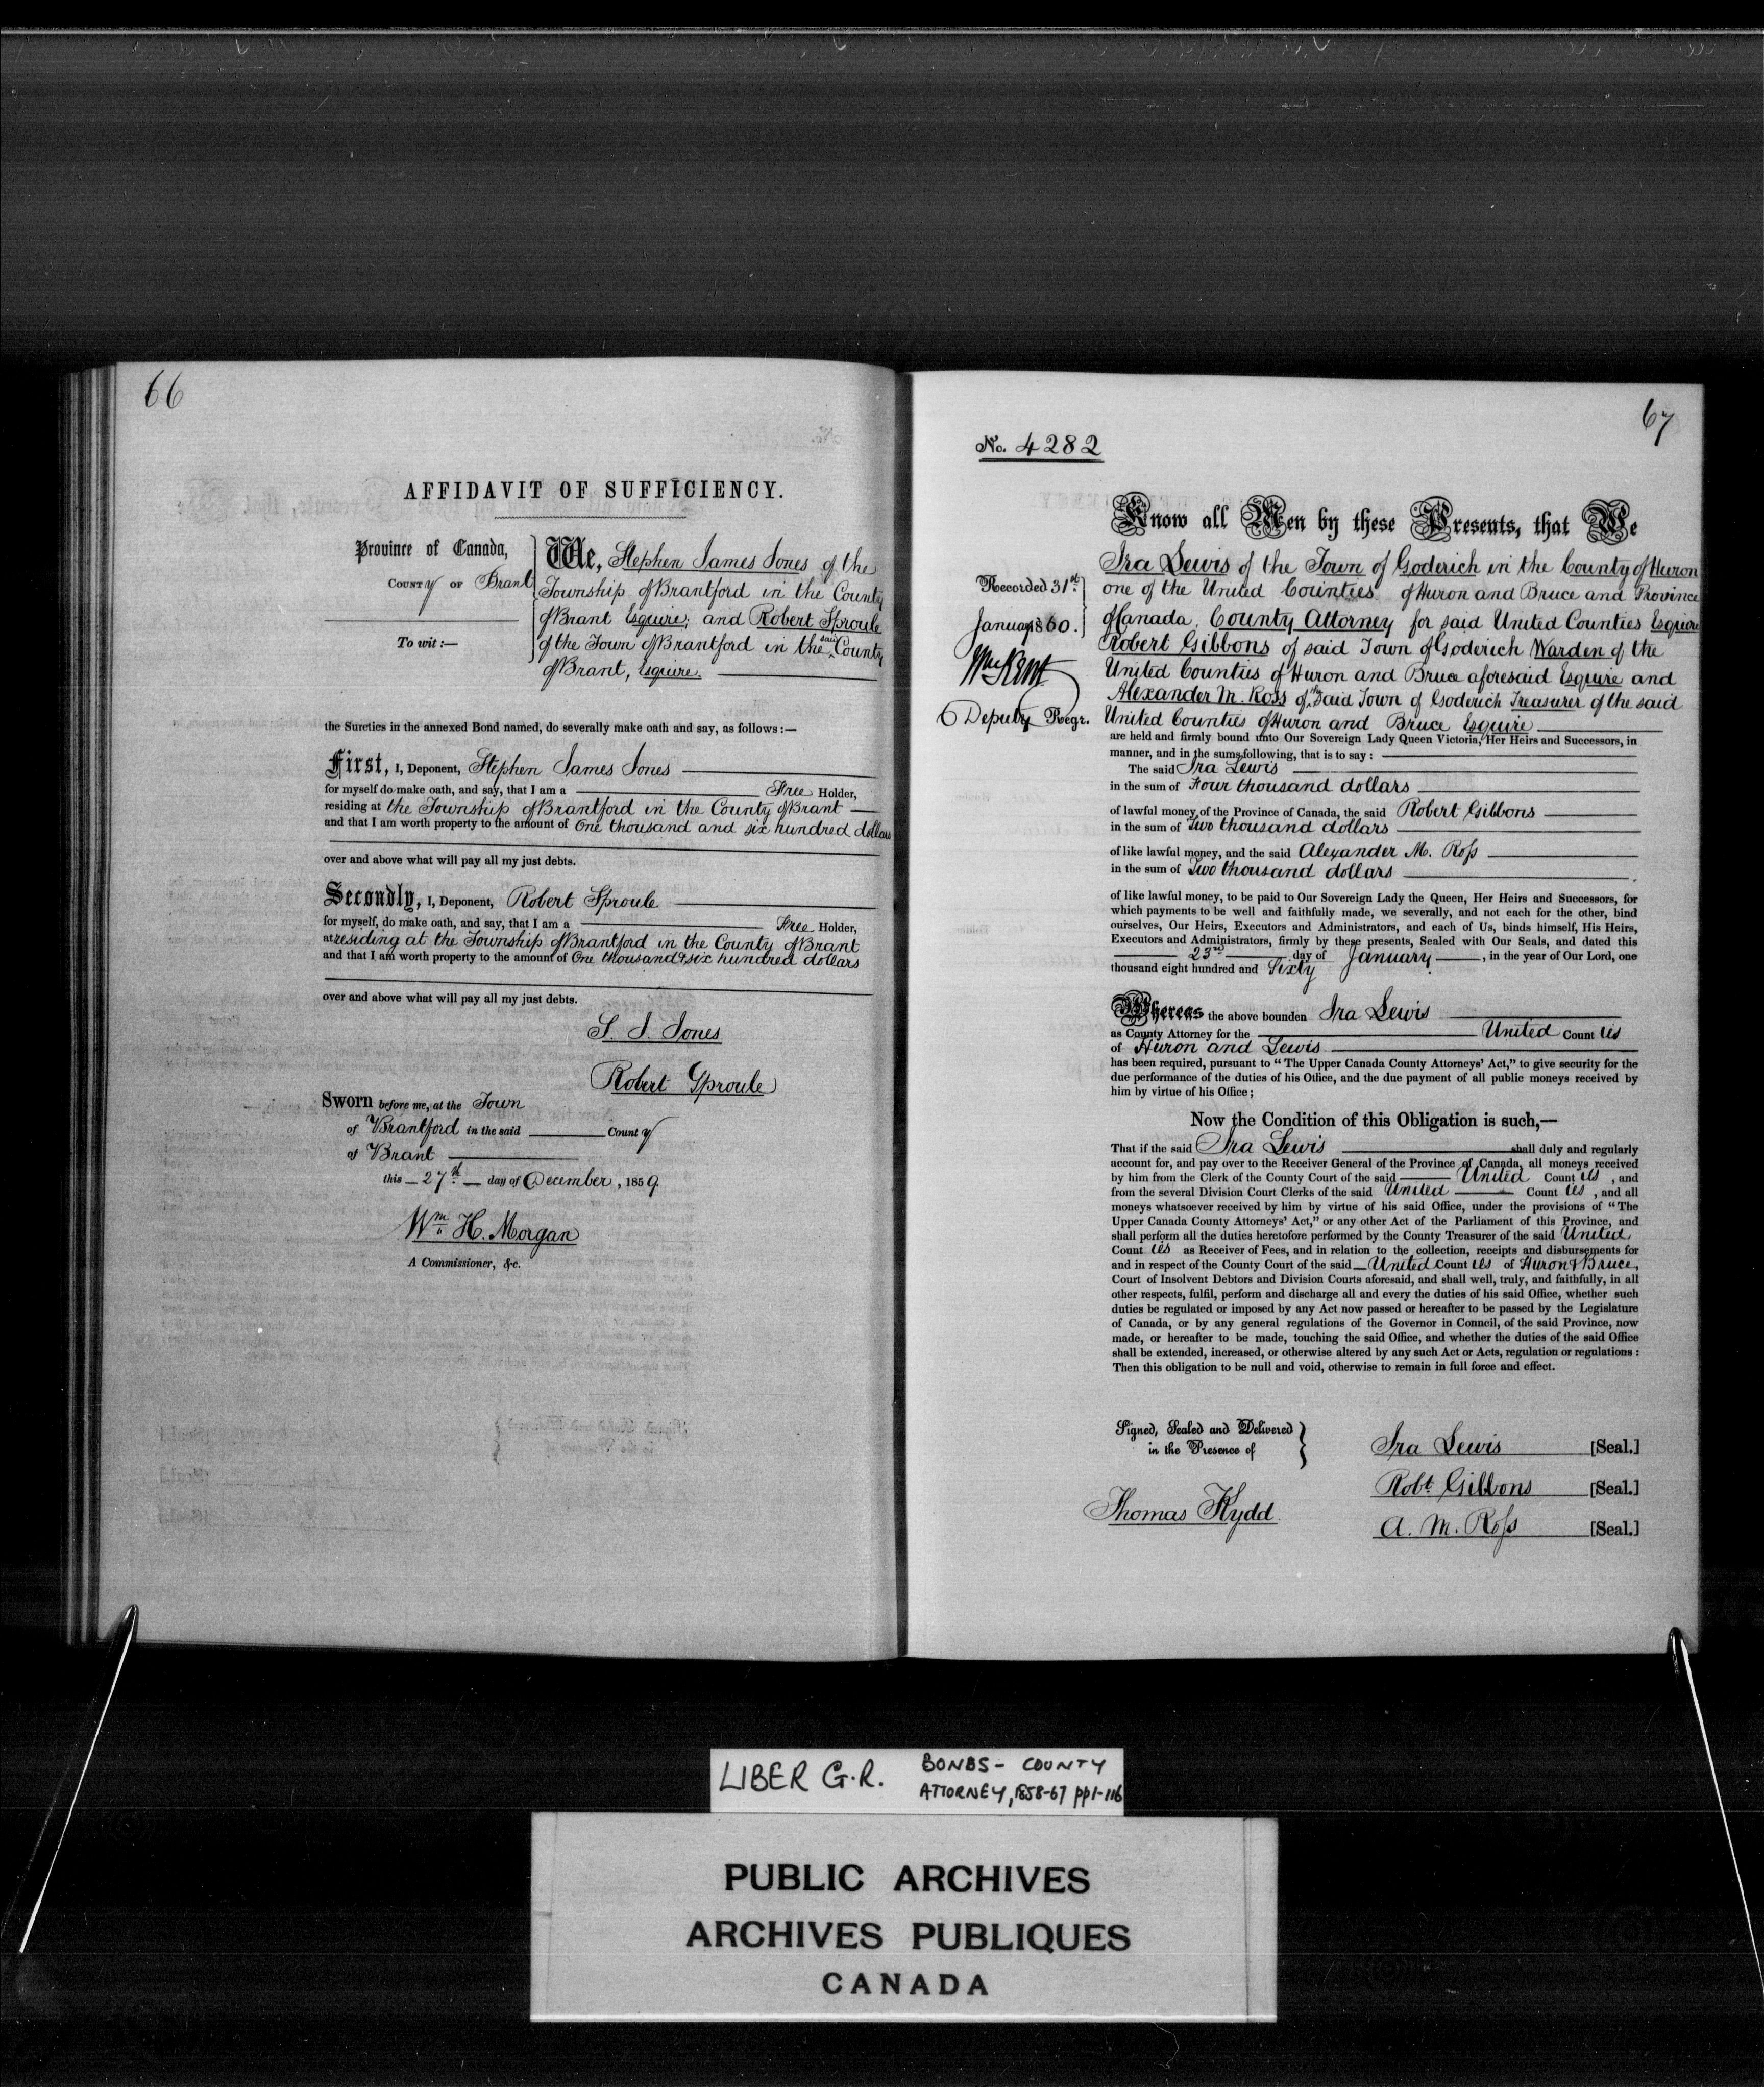 66
AFFIDAVIT OF SUFFICIENCY.
Province of Canada,
COUNTy OF Brant
To wit :—
We, Stephen James Jones of the
Township of Brantford in the County
of Brant Esquire; and Robert Sproule
of the Town of Brantford in the said County
of Brant, Esquire.
the Sureties in the annexed Bond named, do severally make oath and say, as follows :—
First, I, Deponent, Stephen James Jones
for myself do make oath, and say, that I am a Free Holder,
residing at the Township of Brantford in the County of Brant
and that I am worth property to the amount of One thousand and six hundred dollars
over and above what will pay all my just debts.
Secondly, I, Deponent, Robert Sproule
for myself, do make oath, and say, that I am a Free Holder,
at residing at the Township of Brantford in the County of Brant
and that I am worth property to the amount of One thousand & six hundred dollars
over and above what will pay all my just debts.
S. J. Jones
Robert Sproule
Sworn before me, at the Town
of Brantford in the said County
of Brant
this 27th day of December, 1859.
Wm H. Morgan
A Commissioner, &c.
67
No. 4282
Recorded 31st
January 1860.
Wm Kent
Deputy Regr.
Know all Men by these Presents, that We
Ira Lewis of the Town of Goderich in the County of Huron
one of the United Counties of Huron and Bruce and Province
of Canada, County Attorney for said United Counties Esquire
Robert Gibbons of said Town of Goderich Warden of the
United Counties of Huron and Bruce aforesaid Esquire and
Alexander M. Ross of the said Town of Goderich Treasurer of the said
United Counties of Huron and Bruce Esquire
are held and firmly bound unto Our Sovereign Lady Queen Victoria, Her Heirs and Successors, in
manner, and in the sums following, that is to say :
The said Ira Lewis
in the sum of Four thousand dollars
of lawful money of the Province of Canada, the said Robert Gibbons
in the sum of Two thousand dollars
of like lawful money, and the said Alexander M. Ross
in the sum of Two thousand dollars
of like lawful money, to be paid to Our Sovereign Lady the Queen, Her Heirs and Successors, for
which payments to be well and faithfully made, we severally, and not each for the other, bind
ourselves, Our Heirs, Executors and Administrators, and each of Us, binds himself, His Heirs,
Executors and Administrators, firmly by these presents, Sealed with Our Seals, and dated this
23rd day of January, in the year of Our Lord, one
thousand eight hundred and Sixty
Whereas the above bounden Ira Lewis
as County Attorney for the United Counties
of Huron and Lewis
has been required, pursuant to “ The Upper Canada County Attorneys’ Act,” to give security for the
due performance of the duties of his Office, and the due payment of all public moneys received by
him by virtue of his Office ;
Now the Condition of this Obligation is such,—
That if the said Ira Lewis shall duly and regularly
account for, and pay over to the Receiver General of the Province of Canada, all moneys received
by him from the Clerk of the County Court of the said United Counties, and
from the several Division Court Clerks of the said United Counties, and all
moneys whatsoever received by him by virtue of his said Office, under the provisions of “ The
Upper Canada County Attorneys’ Act,” or any other Act of the Parliament of this Province, and
shall perform all the duties heretofore performed by the County Treasurer of the said United
Counties as Receiver of Fees, and in relation to the collection, receipts and disbursements for
and in respect of the County Court of the said United Counties of Huron & Bruce,
Court of Insolvent Debtors and Division Courts aforesaid, and shall well, truly, and faithfully, in all
other respects, fulfil, perform and discharge all and every the duties of his said Office, whether such
duties be regulated or imposed by any Act now passed or hereafter to be passed by the Legislature
of Canada, or by any general regulations of the Governor in Council, of the said Province, now
made, or hereafter to be made, touching the said Office, and whether the duties of the said Office
shall be extended, increased, or otherwise altered by any such Act or Acts, regulation or regulations :
Then this obligation to be null and void, otherwise to remain in full force and effect.
Signed, Sealed and Delivered
in the Presence of
Thomas Kydd
Ira Lewis [Seal.]
Robt Gibbons [Seal.]
A. M. Ross [Seal.]
LIBER G.R. BONDS - COUNTY
ATTORNEY, 1858-67 pp1-116
PUBLIC ARCHIVES
ARCHIVES PUBLIQUES
CANADA